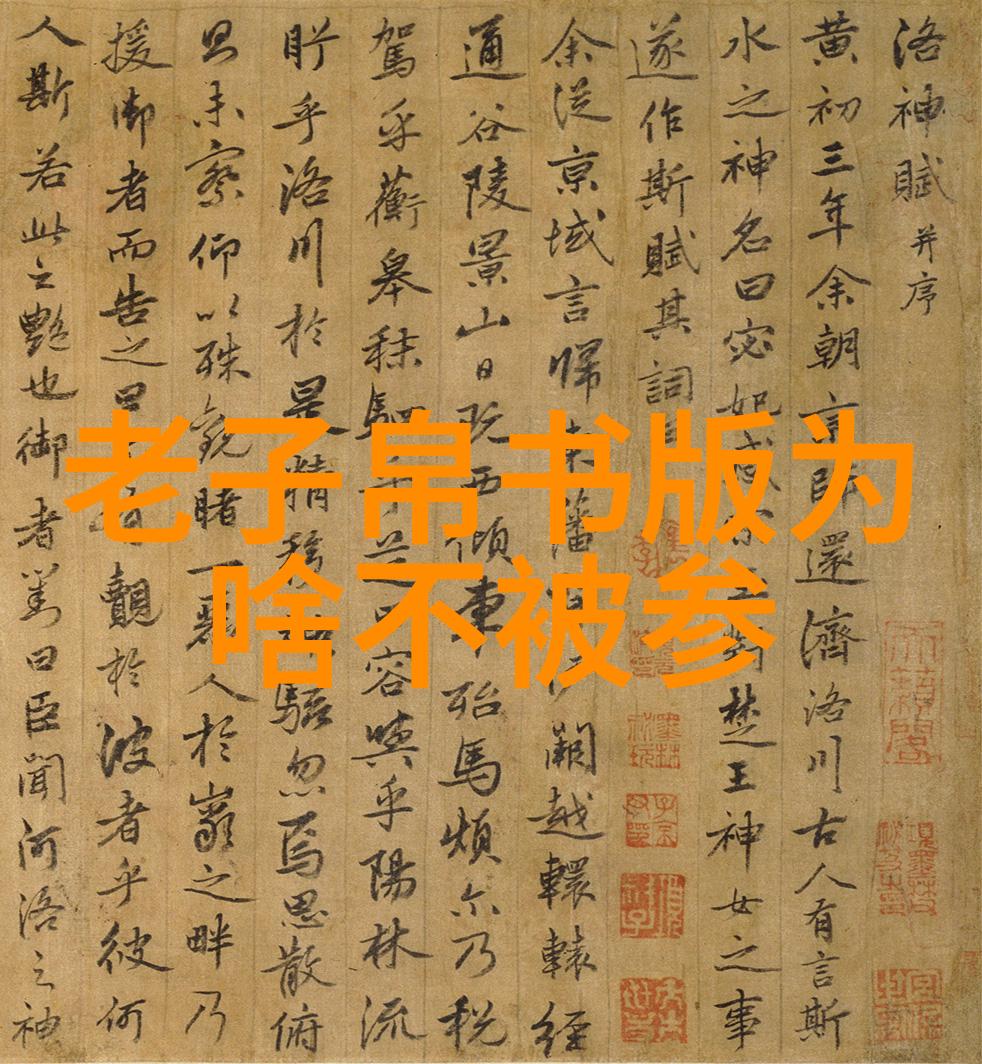 洛神賦并序
黄初三年余朝京師還濟洛川古人有言斯
水之神名曰宓妃感宋對楚王神女之事
遂作斯賦其詞曰
余從京域言歸東藩闕越轘轅經
通谷陵景山日既西傾車殆馬煩尒乃税
駕乎蘅皋秣駟乎芝田容與乎陽林流
眄乎洛川於是精移駭忽焉思散俯
則未察仰以殊觀睹一麗人於巖之畔乃
援御者而告之曰覿於彼者乎彼何
人斯若此之艷也御者對曰臣聞河洛之神
老子帛书版为
啥不被参